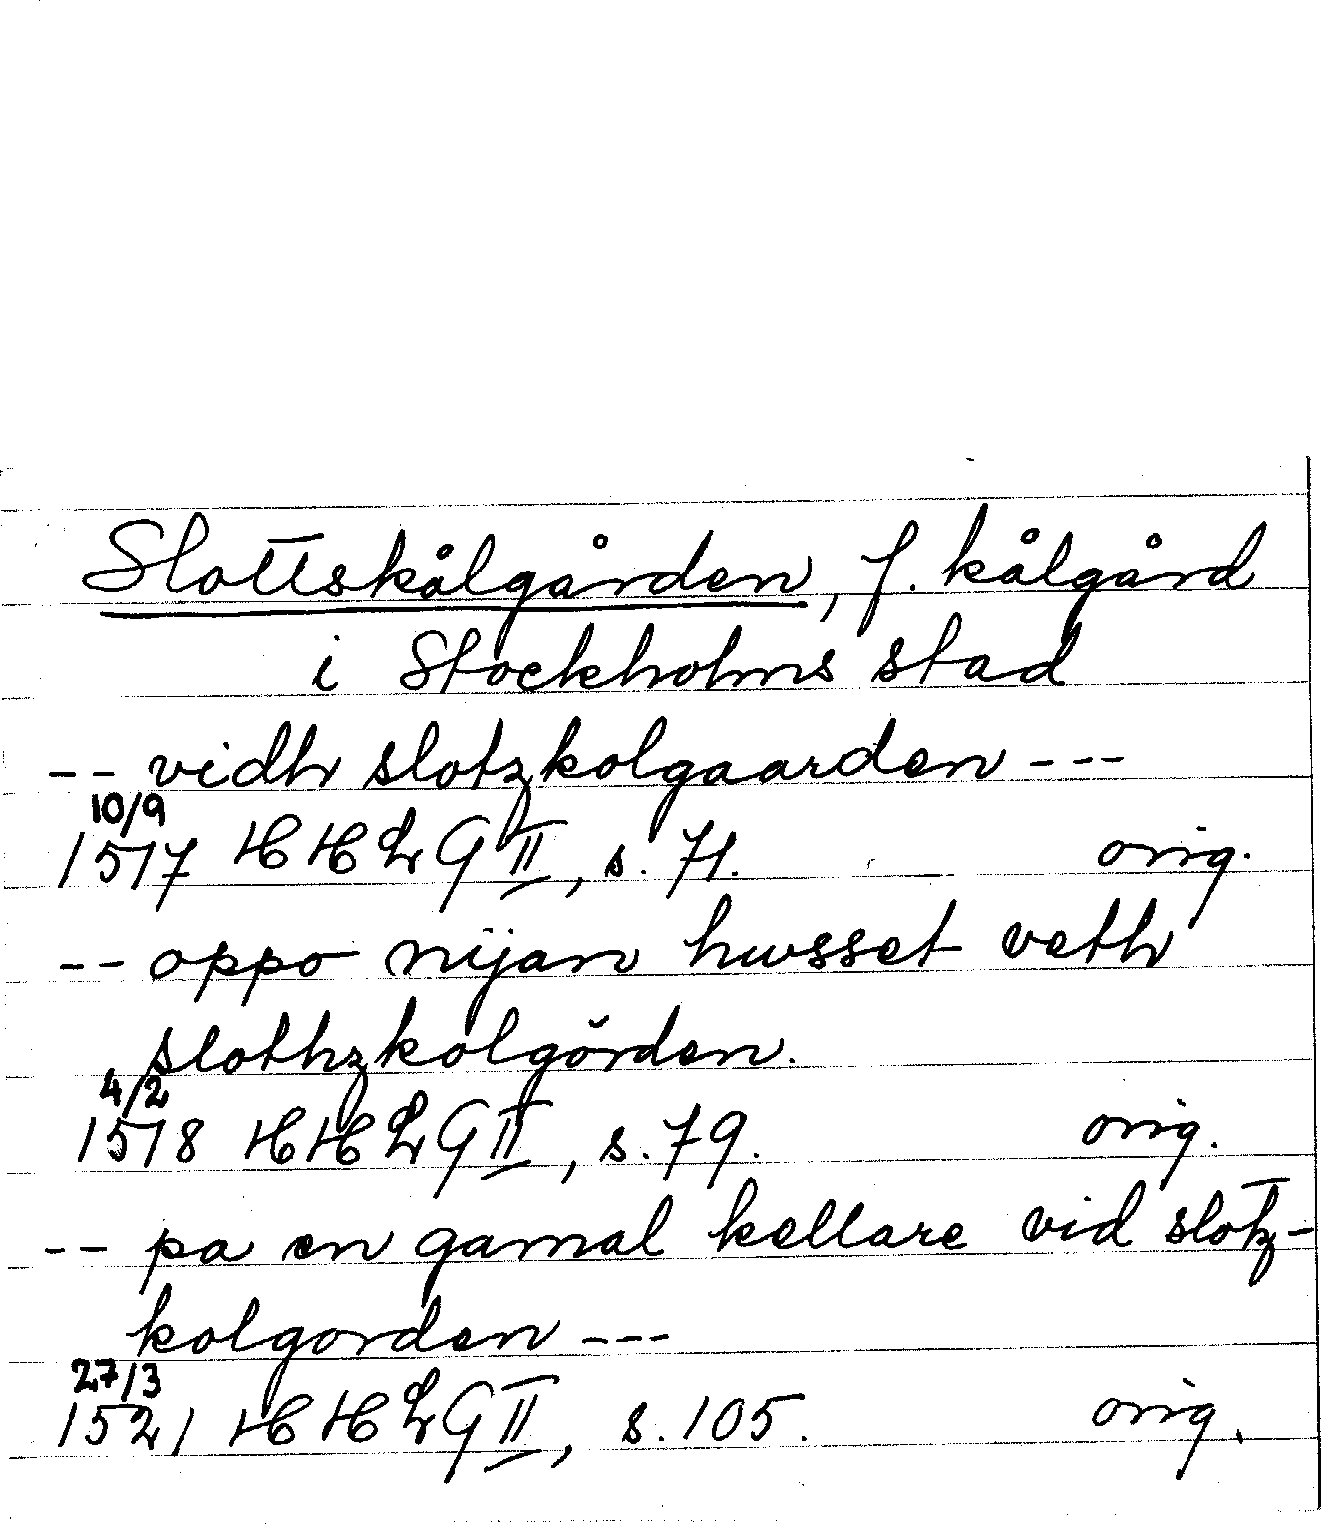 Slottskålgården, f. kålgård
i Stockholms stad
-- vidh slotzkolgaarden ---
10/9
1517 HHLG II, s. 71. orig.
-- oppo nijan hwsset veth
slothzkolgŏrden.
4/2
1518 HHLG II, s. 79. orig.
-- pa en gamal kellare vid slotz-
kolgorden ---
27/3
1521 HHLG II, s. 105. orig.